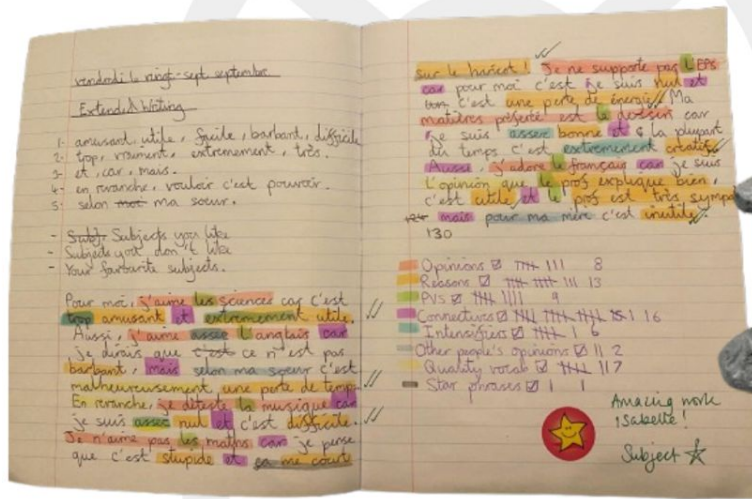 vendredi le vingt-sept septembre
Extended Writing
1- amusant, utile, facile, barbant, difficile
2- trop, vraiment, extremement, très.
3- et, car, mais.
4- en revanche, vouloir c'est pouvoir.
5- selon mot ma soeur.
- Subj. Subjects you like
- Subjects you don't like
- Your favourite subjects.
Pour moi, j'aime les sciences car c'est
trop amusant et extremement utile.
Aussi, j'aime assez l'anglais car
je dirais que c'est ce n'est pas
barbant, mais selon ma soeur c'est
malheureusement, une perte de temps
En revanche, je déteste la musique car
je suis assez nul et c'est difficile.
Je n'aime pas les maths car je pense
que c'est stupide et ça me court
sur le haricot! Je ne supporte pas L'EPS
car pour moi c'est je suis nul et
c'est une perte de énergie. Ma
matières préferté est le dessin car
je suis assez bonne et la plupart
du temps c'est extremement créatif
Aussi, j'adore le français car je suis
L'opinion que le prof explique bien,
c'est utile et le prof est très sympa
mais pour ma mère c'est inutile.
130
Opinions 8
Reasons 13
PVS 9
Connectives 16
Intensifiers 6
Other people's opinions 2
Quality vocab 7
Star phrases 1
Amazing work
isabelle!
Subject